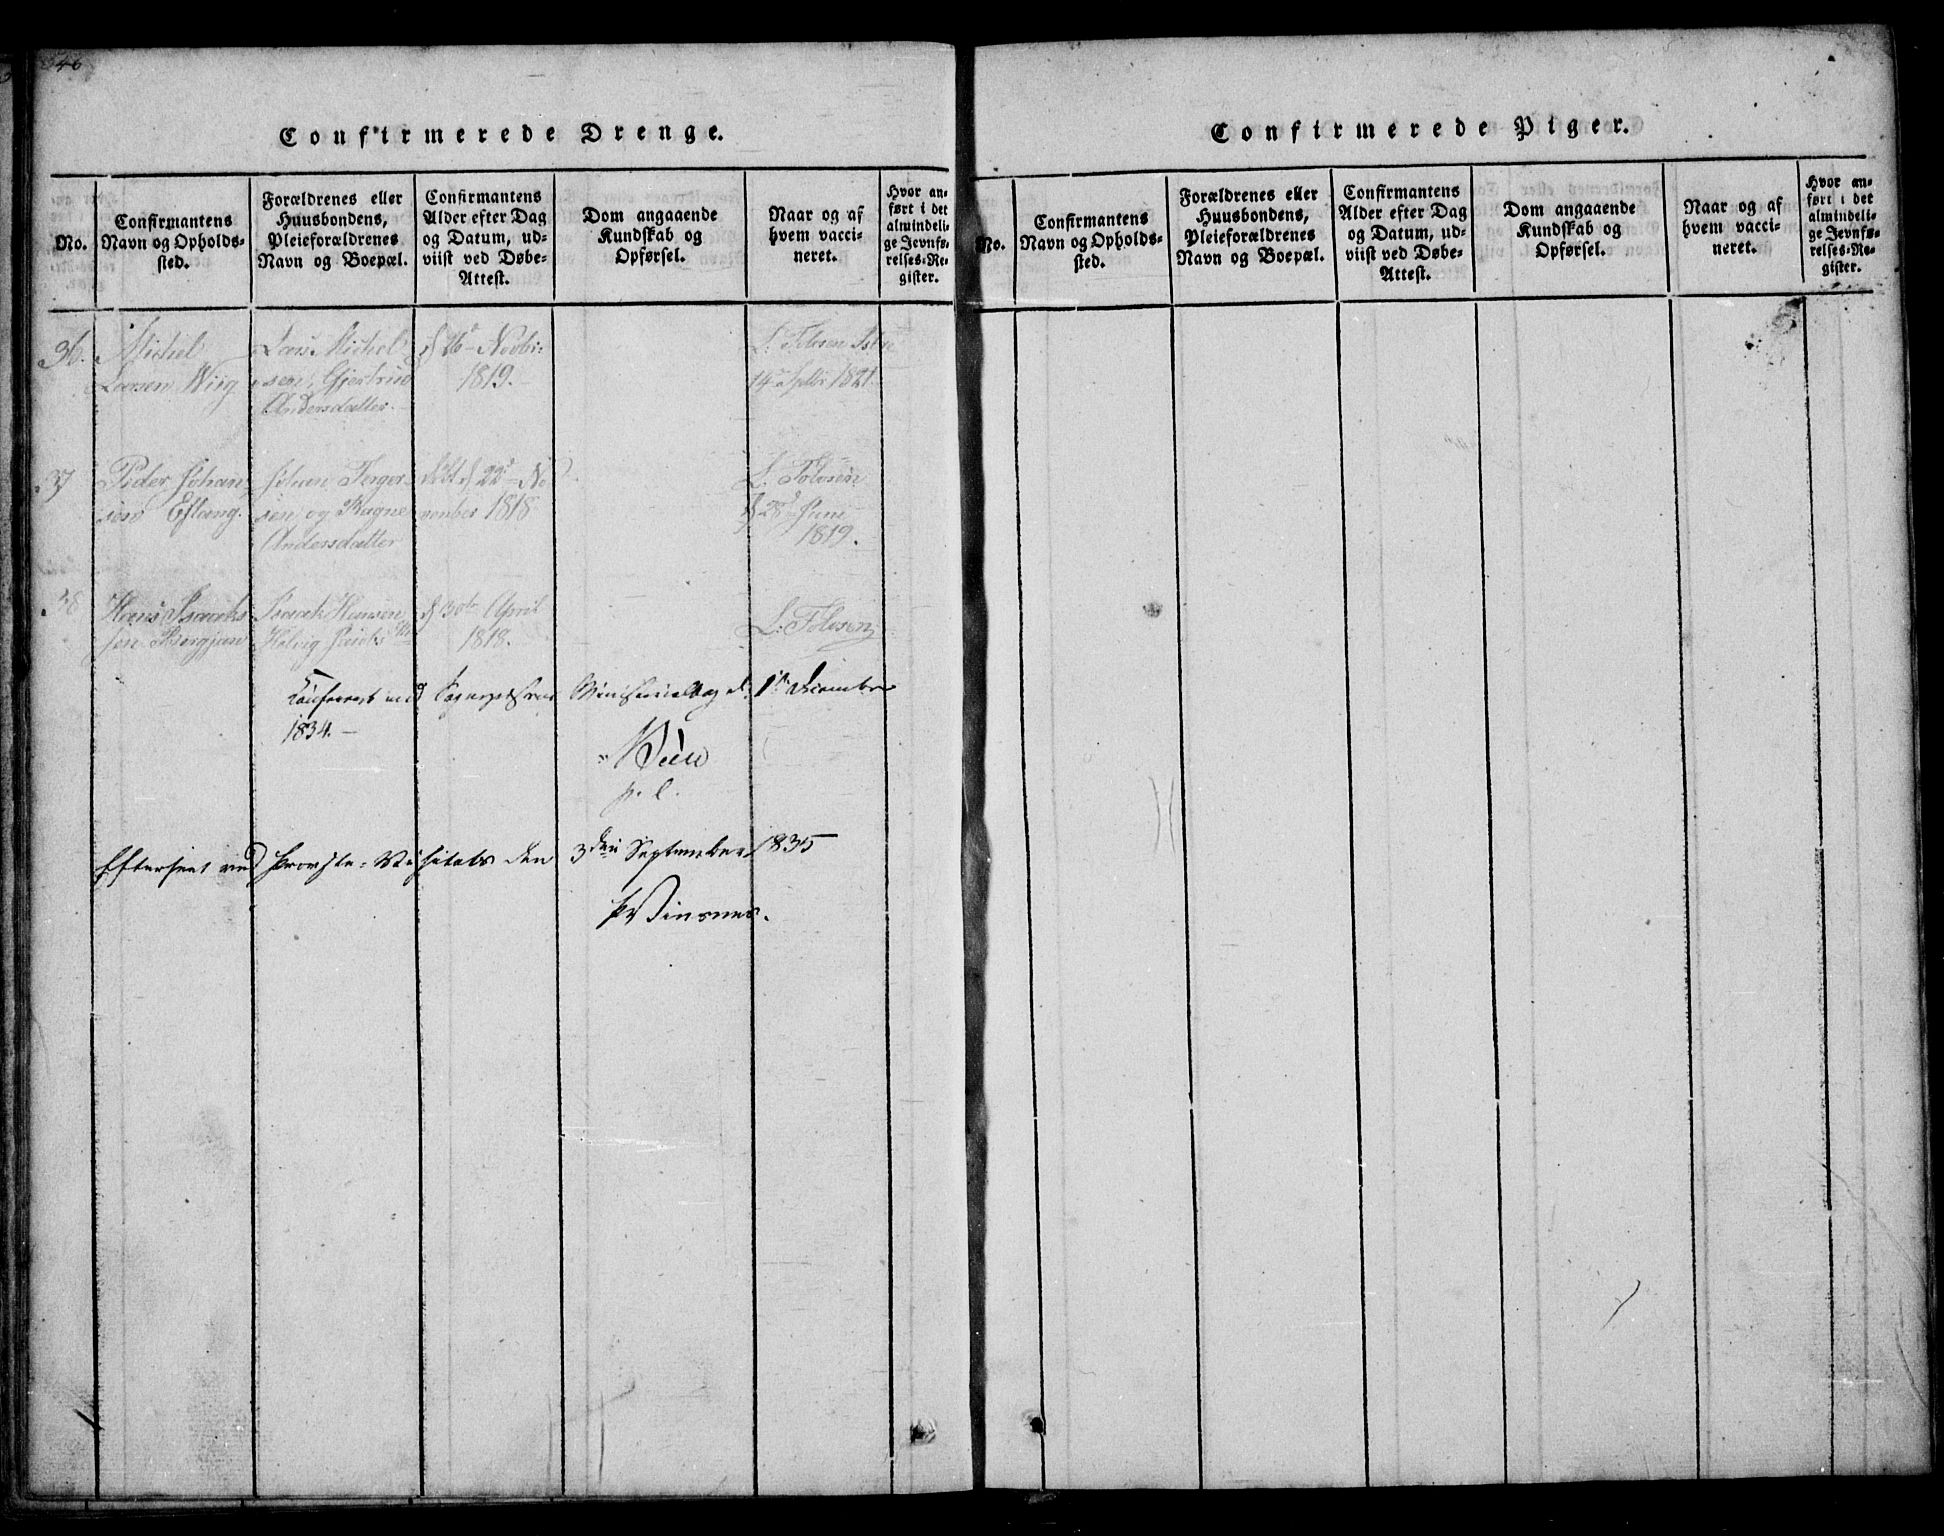 46
Confirmerede Drenge.
No.
Confirmantens
Navn og Opholds-
sted.
Forældrenes eller
Huusbondens,
Pleieforældrenes
Navn og Boepæl.
Confirmantens
Alder efter Dag
og Datum, ud-
viist ved Døbe-
Attest.
Dom angaaende
Kundskab og
Opførsel.
Naar og af
hvem vacci-
neret.
Hvor an-
ført i det
almindeli-
ge Jevnfø-
relses-Re-
gister.
36.
Michel
Larsen Wiig
Lars Michel
sen, Gjertrud
Andersdatter.
d 16 Novbr:
1819.
L. Tolvsen
14 Septbr 1821.
37
Peder Johan
sen Eftang.
Johan Jerger
sen og Ragne
Andersdatter
d 22 No
vember 1818
L. Tolvsen
d 28 Juni
1819.
38
Hans Isaaks
sen Bergjan
Isaak Hansen
Helvig
d 30te April
1818.
L. Tolvsen
Confereret med Sognepræstens Ministerialbog d: 1ste December
1834. —
p. l.
Efterseet ved Provste-Visitats den 3die September 1835
Winsnes.
Confirmerede Piger.
No.
Confirmantens
Navn og Opholds-
sted.
Forældrenes eller
Huusbondens,
Pleieforældrenes
Navn og Boepæl.
Confirmantens
Alder efter Dag
og Datum, ud-
viist ved Døbe-
Attest.
Dom angaaende
Kundskab og
Opførsel.
Naar og af
hvem vacci-
neret.
Hvor an-
ført i det
almindeli-
ge Jevnfø-
relses-Re-
gister.